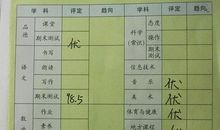 学科 评定 趋向 学科 评定 趋向
品德 课堂 科学(常识) 态度
期末测试 优 操作
语文 书写 期末测试
朗读 信息技术
写作 音乐 优
期末测试 98.5 美术 优
数学 作业 体育与健康 优
地方课程